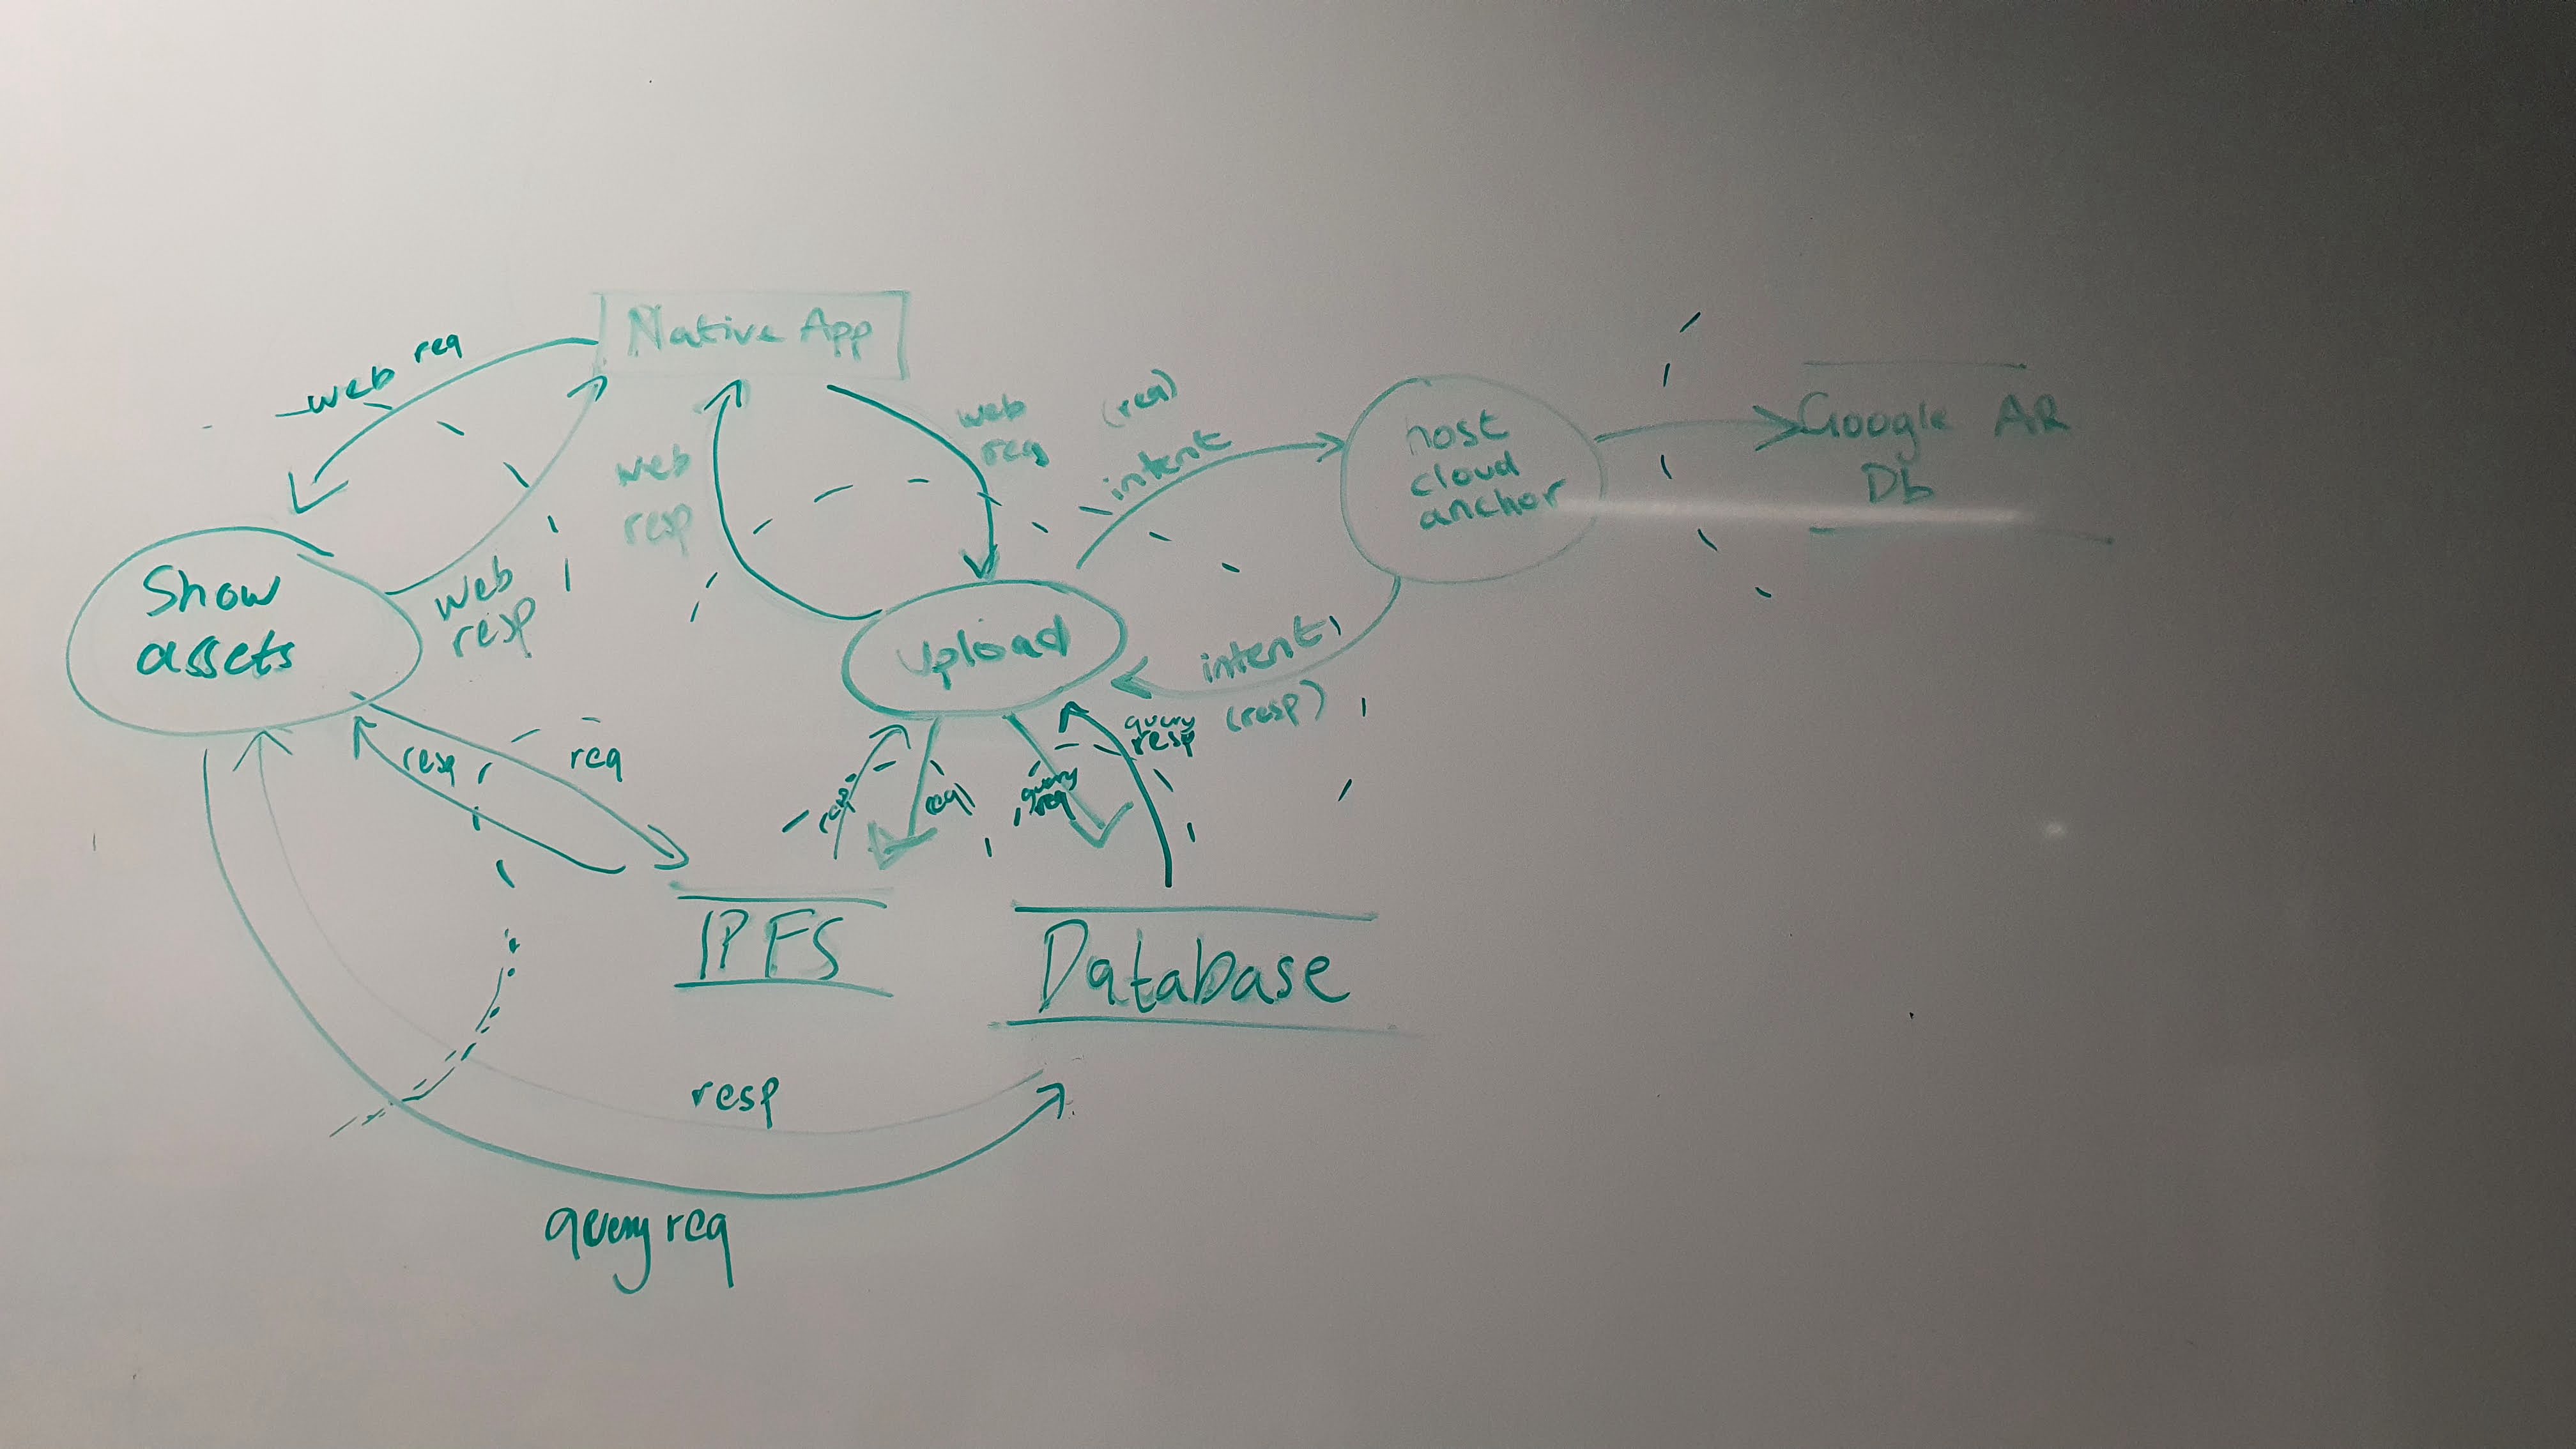 Native App
web req
web
resp
web
req
(req)
intent
host
cloud
anchor
Google AR
Db
Show
assets
web
resp
upload
intent
(resp)
resp
req
resp
req
query
req
query
resp
IPFS
Database
resp
query req